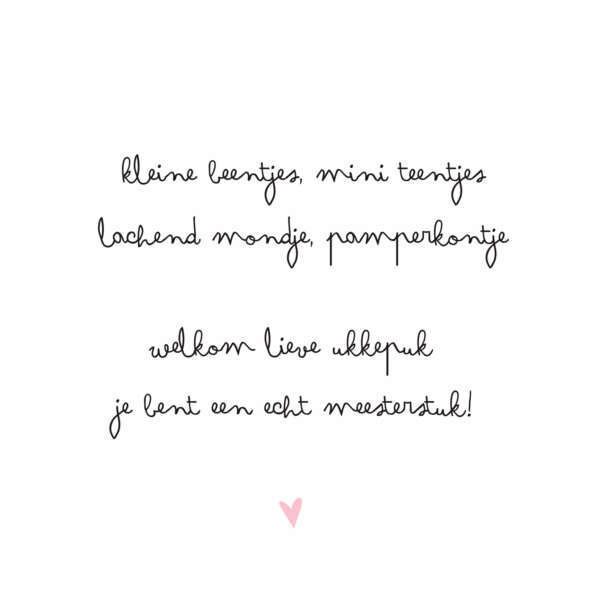 kleine beentjes, mini teentjes
lachend mondje, pamperkontje
welkom lieve ukkepuk
je bent een echt meesterstuk!